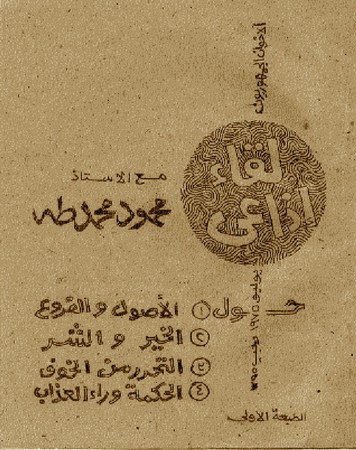 الأخوان الجمهوريون
لقاء
إذاعي
مع الاستاذ
محمود محمد طه
يوليو ١٩٧٥ رجب ١٣٩٥
حول
١ الأصول والفروع
٢ الخير والشر
٣ التحرر من الخوف
٤ الحكمة وراء العذاب
الطبعة الاولى